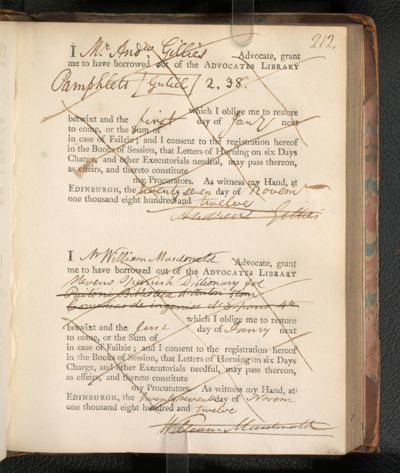 212.
I Mr. Andw. Gillies Advocate, grant
me to have borrowed out of the ADVOCATES LIBRARY
Pamphlets 2. 38.
which I oblige me to restore
betwixt and the first day of Jany next
to come, or the Sum of
in case of Failzie; and I consent to the registration hereof
in the Books of Session, that Letters of Horning on six Days
Charge, and other Executorials needful, may pass thereon,
as effeirs, and thereto constitute
my Procurators. As witness my Hand, at
EDINBURGH, the twenty seven day of Novemr
one thousand eight hundred and twelve
Andrew Gillies
I Mr William Macdonald Advocate, grant
me to have borrowed out of the ADVOCATES LIBRARY
Stevens Spanish Dictionary
which I oblige me to restore
betwixt and the first day of Janry next
to come, or the Sum of
in case of Failzie; and I consent to the registration hereof
in the Books of Session, that Letters of Horning on six Days
Charge, and other Executorials needful, may pass thereon,
as effeirs, and thereto constitute
my Procurators. As witness my Hand, at
EDINBURGH, the twenty seventh day of Novem
one thousand eight hundred and twelve
William Macdonald